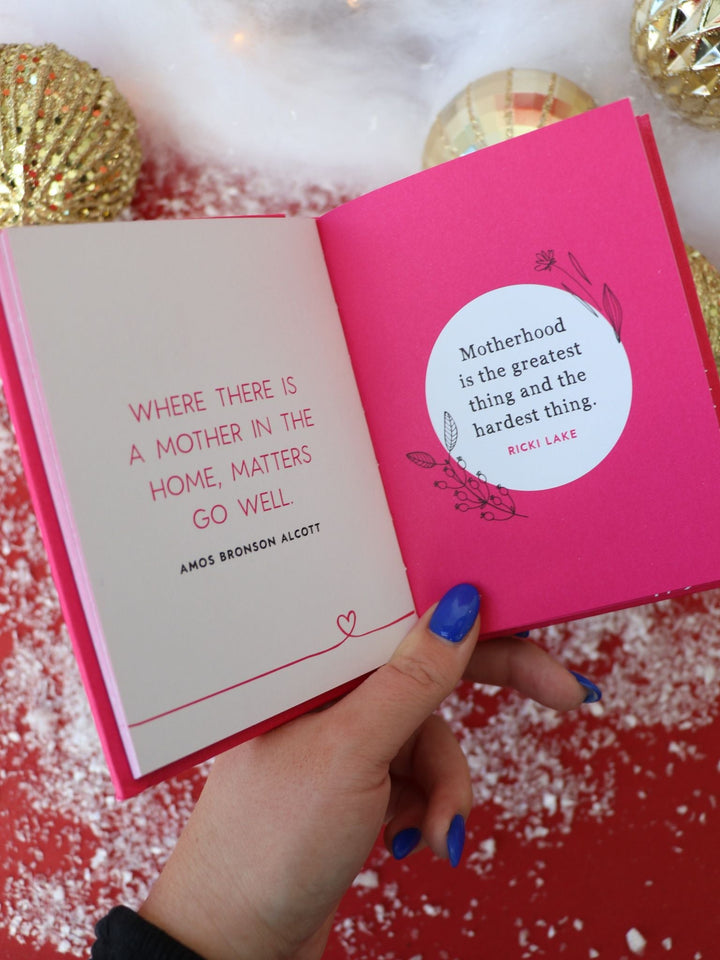 WHERE THERE IS
A MOTHER IN THE
HOME, MATTERS
GO WELL.
AMOS BRONSON ALCOTT
Motherhood
is the greatest
thing and the
hardest thing.
RICKI LAKE